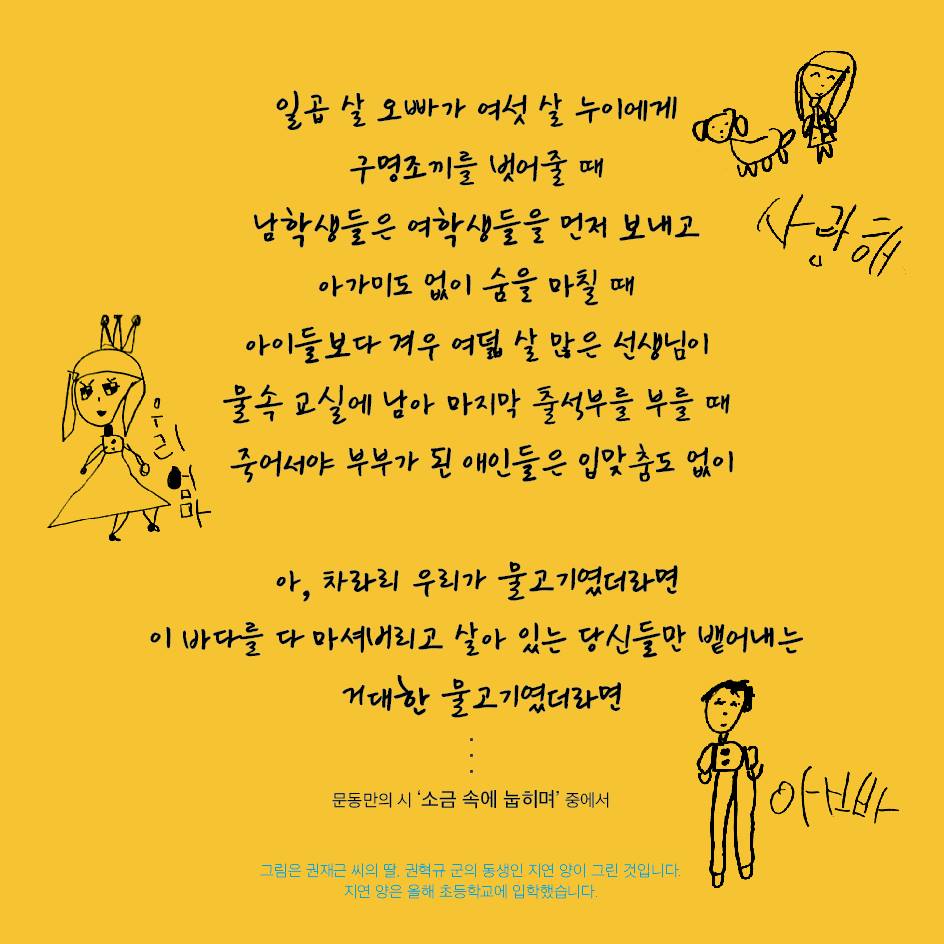 일곱 살 오빠가 여섯 살 누이에게
구명조끼를 벗어줄 때
남학생들은 여학생들을 먼저 보내고
아가미도 없이 숨을 마칠 때
아이들보다 겨우 여덟 살 많은 선생님이
물속 교실에 남아 마지막 출석부를 부를 때
죽어서야 부부가 된 애인들은 입맞춤도 없이
아, 차라리 우리가 물고기였더라면
이 바다를 다 마셔버리고 살아 있는 당신들만 뱉어내는
거대한 물고기였더라면
문동만의 시 ‘소금 속에 눕히며’ 중에서
그림은 권재근 씨의 딸, 권혁규 군의 동생인 지연 양이 그린 것입니다.
지연 양은 올해 초등학교에 입학했습니다.
사랑해
우리 엄마